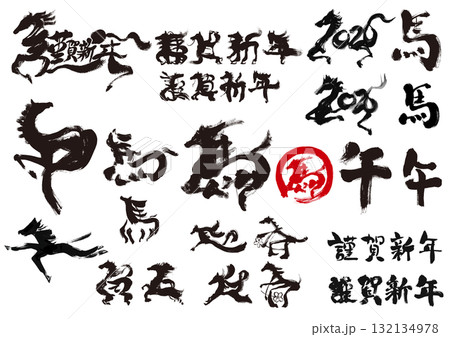 謹賀新年
謹賀新年
謹賀新年
2026
馬
2026
馬
馬
馬
午
午
馬
賀正
迎春
謹賀新年
謹賀新年
132134978